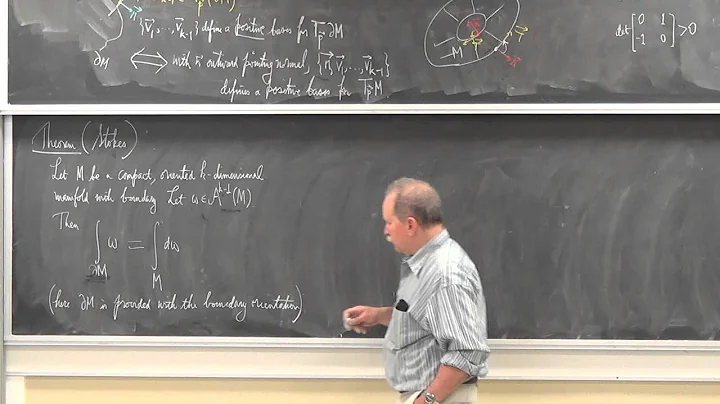 {v⃗₁,...,v⃗ₖ₋₁} define a positive basis for T_p⃗ ∂M
∂M ⟺ with n⃗ outward pointing normal, {n⃗, v⃗₁,...,v⃗ₖ₋₁}
defines a positive basis for T_p⃗ M.
M
det [0 1
-1 0] > 0
Theorem (Stokes)
Let M be a compact, oriented k-dimensional
manifold with boundary. Let ω ∈ A^{k-1}(M)
Then
∫_{∂M} ω = ∫_M dω
(here ∂M is provided with the boundary orientation)